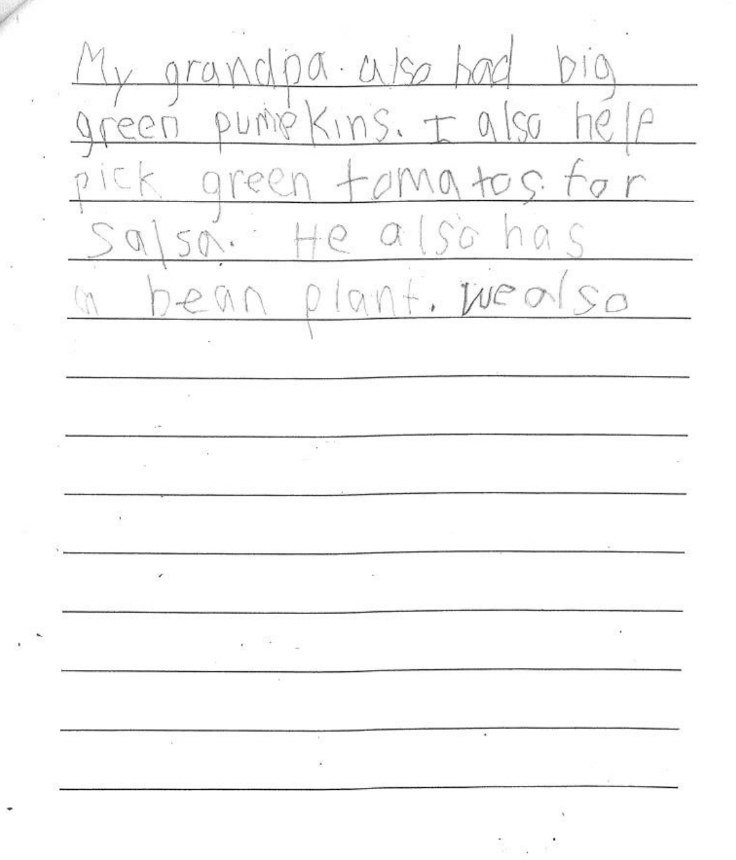 My grandpa. also had big
green pumpkins. I also help
pick green tomatos. for
salsa. He also has
a bean plant. We also